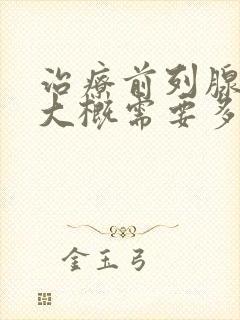 治疗前列腺
大概需要多
金玉弓